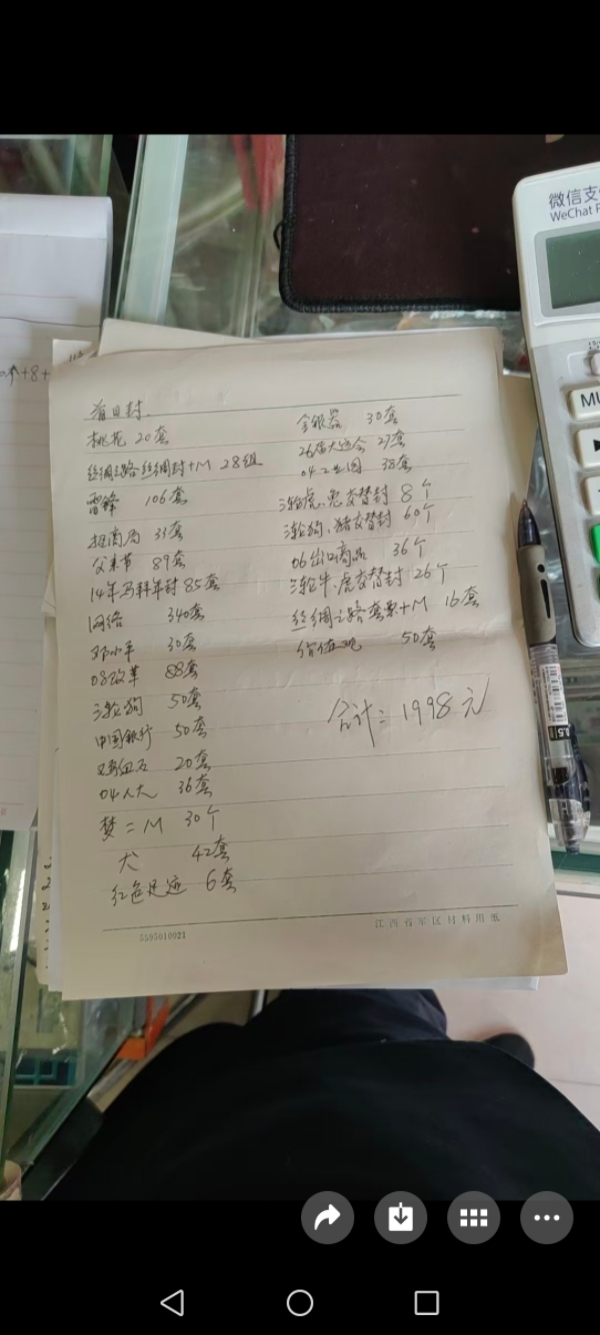 微信支
WeChat P
MU
首日封.
桃花 20套
丝绸之路丝绸封+M 28组
雷锋 106套
招商局 33套
父亲节 89套
14年马拜年封 85套
网络 340套
邓小平 30套
08改革 88套
三轮狗 50套
中国银行 50套
鸡血石 20套
04人大 36套
梦二M 30个
犬 42套
红色足迹 6套
金银器 30套
26届大运会 27套
04工业园 38套
三轮虎、兔交替封 8个
三轮狗、猪交替封 60个
06出口商品 36个
三轮牛、虎交替封 26个
丝绸之路套票+M 16套
价值观 50套
合计: 1998元
5595010021
江西省军区材料用纸